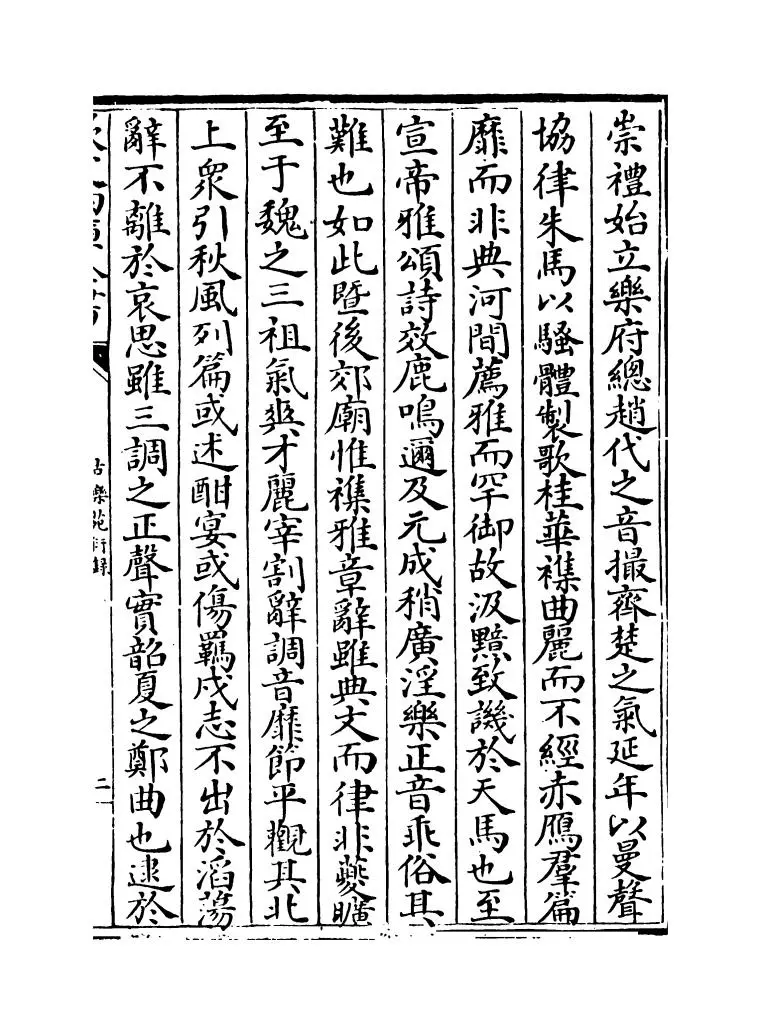 崇禮始立樂府總趙代之音撮齊楚之氣延年以曼聲
協律朱馬以騷體製歌桂華襍曲麗而不經赤鴈羣篇
靡而非典河間薦雅而罕御故汲黯致譏於天馬也至
宣帝雅頌詩效鹿鳴邇及元成稍廣淫樂正音乖俗其
難也如此暨後郊廟惟襍雅章辭雖典文而律非夔曠
至于魏之三祖氣爽才麗宰割辭調音靡節平觀其北
上衆引秋風列篇或述酣宴或傷羈戍志不出於滔蕩
辭不離於哀思雖三調之正聲實韶夏之鄭曲也逮於
古樂苑衍錄
二